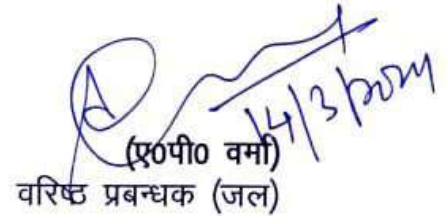 14/3/2024
(ए०पी० वर्मा)
वरिष्ठ प्रबन्धक (जल)